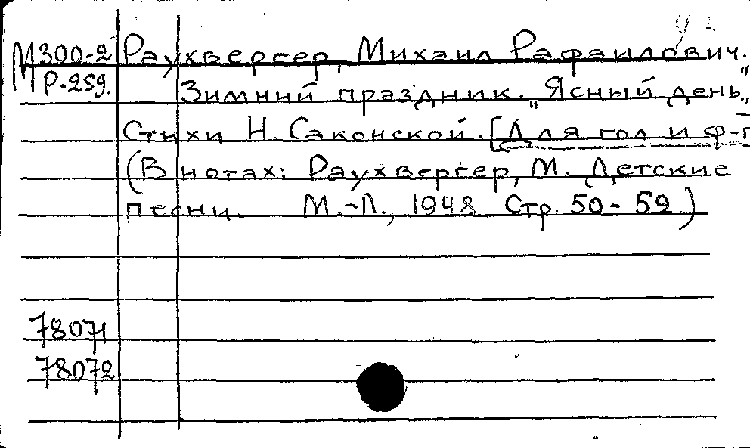 М300-2 Раухвергер, Михаил Рафаилович.
Р-259.
Зимний праздник. "Ясный день"
Стихи Н. Саконской. [Для гол и ф-п
(В нотах: Раухвергер, М. Детские
песни. М.-Л., 1948 Стр. 50-59)
78071
78072